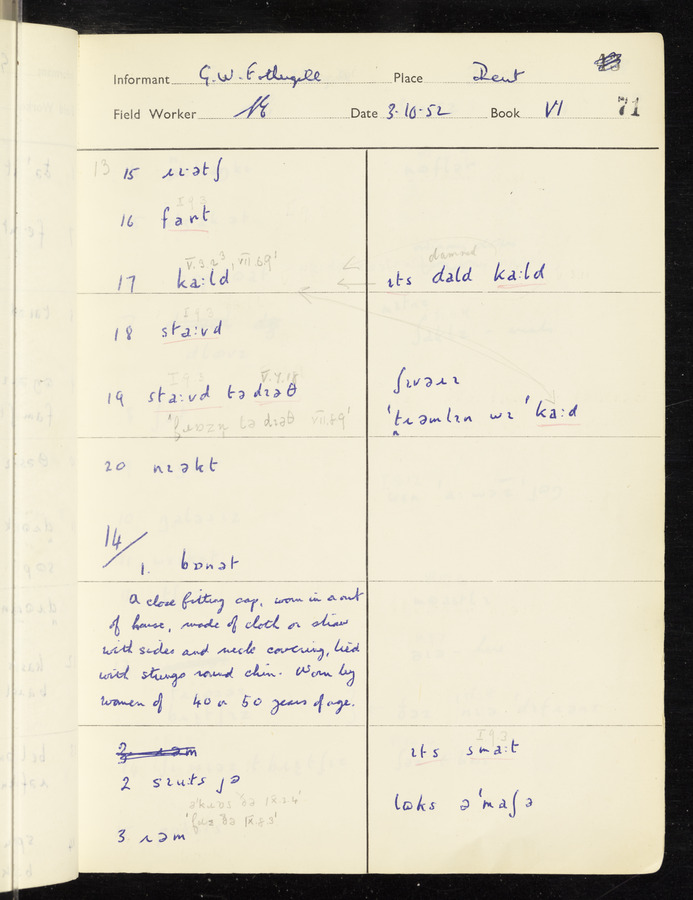 Informant G.W. Fothergill Place Dent
Field Worker Date 3·10·52 Book VI 71
13 15
I 9 3
16 faɪnt
V.3.2³, VII.69'
17 ka:ld
damned
ɪts dald ka:ld
I 9 3
18 sta:vd
I 9.3 V.7.18
19 sta:vd tə dɪəθ
VII.69'
ʃɪvəɪɪ
ˈtɹəmlɪn wɪ ˈka:d
20 nɪəkt
14/
1. bɒnət
A close fitting cap, worn in & out
of house, made of cloth or straw
with sides and neck covering, tied
with strings round chin. Worn by
women of 40 or 50 years of age.
I 9 3
ɪts sma:t
2 sɪuːts jə
IX.2.4'
IX.8.3'
lɒks əˈmaʃə
3 ɹəm